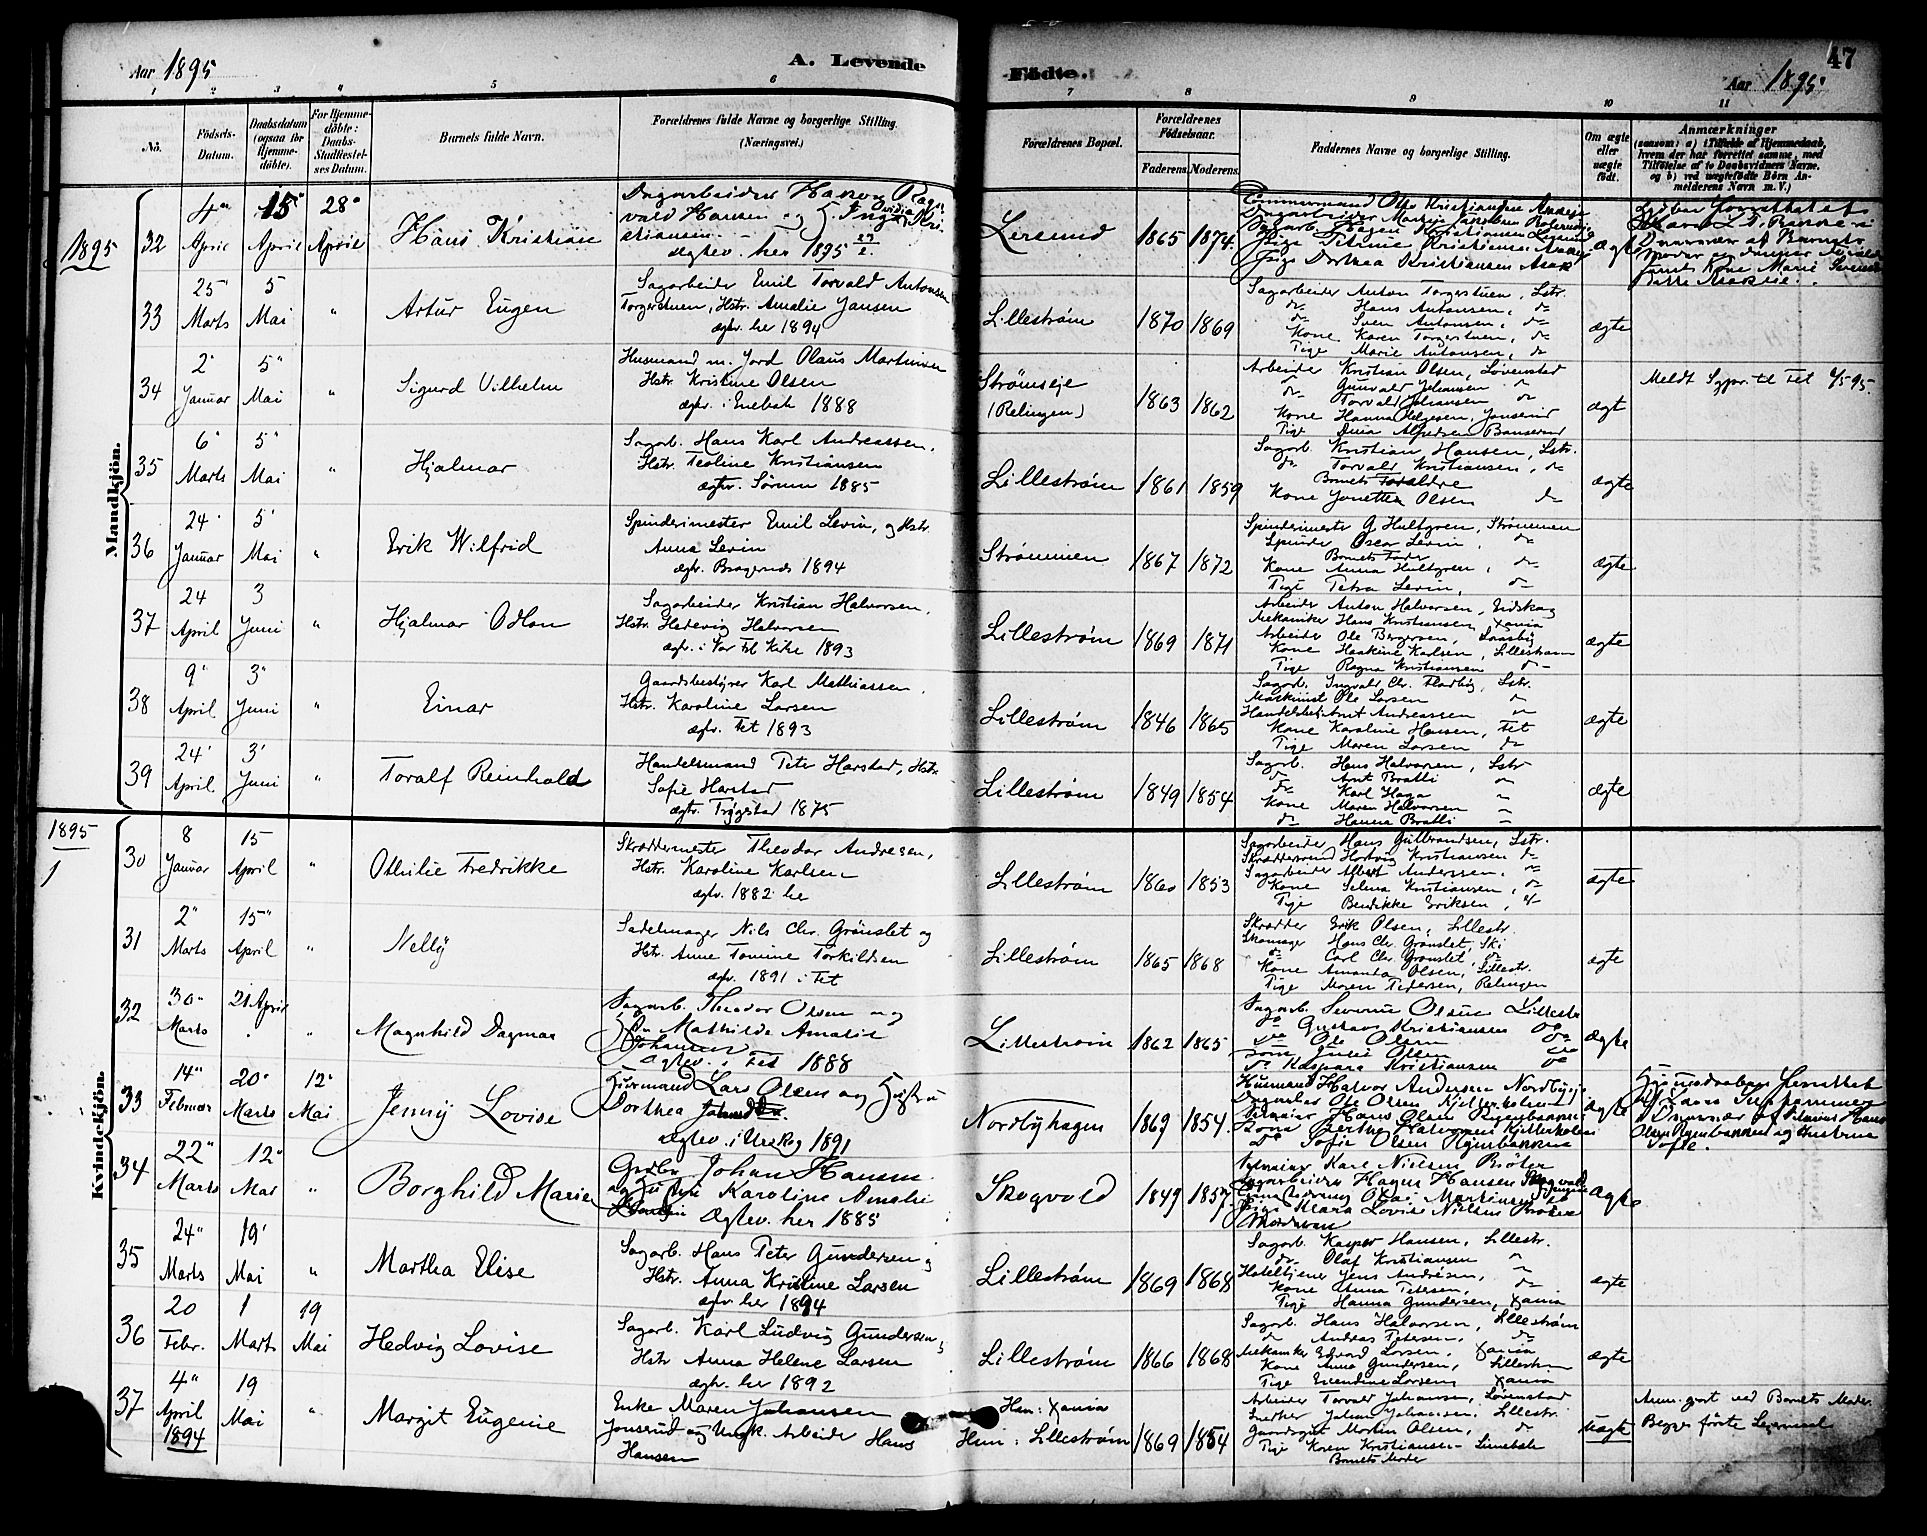 Aar 1895
A. Levende
Födte.
Aar 1895
47
1 2 3 4 5 6 7 8 9 10 11
No.
Födsels-Datum.
Daabsdatum (ogsaa for Hjemme-döbte).
For Hjemme-döbte: Daabs-Stadfæstel-ses Datum.
Barnets fulde Navn.
Forældrenes fulde Navne og borgerlige Stilling. (Næringsvei.)
Forældrenes Bopæl.
Forældrenes Födselsaar.
Faderens. Moderens.
Faddernes Navne og borgerlige Stilling.
Om ægte eller uægte födt.
Anmærkninger
(saasom: a) i Tilfælde af Hjemmedaab, hvem der har forrettet samme, med Tilföielse af to Daabsvidners Navne, og b) ved uægtefödte Börn An-melderens Navn m. V.)
Mandkjön.
1895
32 4" April 15" April 28" April Hans Kristian
Dagarbeider
vald Hansen og
stiansen.
ægtev. her 1895
Lersund 1865 1874
Tømmermand Otto Kristiansen
Dagarbeider
Pige Dorthea Kristiansen Asak
ægte
33 25" Marts 5 Mai " Artur Eugen
Sagarbeider Emil Torvald Antonsen
Torgerstuen, Hstr. Amalie Jansen
ægtv. her 1894
Lillestrøm 1870 1869
Sagarbeider Anton Torgerstuen, Lstr.
do Hans Antonsen, do
do Sven Antonsen, do
Kone Karen Torgerstuen, do
Pige Marie Antonsen, do
ægte
34 2" Januar 5" Mai " Sigurd Vilhelm
Husmand m. Jord Olaus Martinsen
Hstr. Kristine Olsen
ægtv. i Enebak 1888
Strømseje
(Relingen)
1863 1862
Arbeider Kristian Olsen, Løvenstad
do Gunvald Johansen do
Torvald Johansen do
Kone Hanna Helgesen, Jonsrud
Pige Anna Alfredsen
ægt
Meldt Sgpr. til Fet 4/5 95.
35 6" Marts 5" Mai " Hjalmar
Sagarb. Hans Karl Andreassen,
Hstr. Teoline Kristiansen
ægtv. Sørum 1885
Lillestrøm 1861 1859
Sagarb. Kristian Hansen, Lstr.
do Torvald Kristiansen, do
Barnets Forældre
Kone Jonette Olsen do
ægte
36 24' Januar 5' Mai " Erik Wilfrid
Spinderimester Emil Levin, og Hstr.
Anna Levin
ægtv. Bragernes 1894
Strømmen 1867 1872
Spinderimester G. Hultgren, Strømmen
Spinder Oscar Levin, do
Barnets Fader
Kone Anna Hultgren, do
Pige Petra Levin, do
ægte
37 24 April 3 Juni " Hjalmar Odlon
Sagarbeider Kristian Halvorsen,
Hstr. Hedevig Halvorsen
ægtv. i Vor Frl Kirke 1893
Lillestrøm 1869 1871
Arbeider Anton Halvorsen, Eidskog
Mekaniker Hans Kristiansen, Xania
Arbeider Ole Bergersen,
Kone Haakine Karlsen, Lillestrøm
Pige Ragna Kristiansen do
ægte
38 9" April 3" Juni " Einar
Gaardsbestyrer Karl Mathiassen,
Hstr. Karoline Larsen
ægtv. Fet 1893
Lillestrøm 1846 1865
Sagarb. Ingvald Chr. Fladby, Lstr.
Maskinist Ole Larsen do
Handelsbetj. Arnt Andreassen do
Kone Karoline Hansen, Fet
Pige Maren Larsen do
ægte
39 24' April 3' Juni " Toralf Reinhold
Handelsmand Peter Harstad, Hstr.
Sofie Harstad
ægtv. Trygstad 1875
Lillestrøm 1849 1854
Sagarb. Hans Halvorsen, Lstr
do Arnt Bratli
do Karl Haga
Kone Maren Halvorsen
do Hanna Bratli
ægte
1895
1
Kvindekjön.
30 8 Januar 15 April " Othilie Fredrikke
Skræddermester Theodor Andresen,
Hstr. Karoline Karlsen
ægtv. 1882 her
Lillestrøm 1860 1853
Sagarbeider Hans Gulbrandsen, Lstr.
Skræddersvend Hartvig Kristiansen do
Sagarbeider Albert Anderssen, do
Kone Selma Kristiansen, do
Pige Bendikke Eriksen, do
ægte
31 2" Marts 15" April " Nelly
Sadelmager Nils Chr. Grønslet og
Hstr. Anne Tomine Torkildsen
ægtv. 1891 i Fet
Lillestrøm 1865 1868
Skrædder Erik Olsen, Lillestr.
Skomager Hans Chr. Grønslet, Ski
do Carl Chr. Grønslet, do
Kone Amanda Olsen, Lillestr.
Pige Maren Pedersen, Relingen
ægte
32 30" Marts 21 April " Magnhild Dagmar
Sagarb. Theodor Olsen og
Mathilde Amalie
Johansen
ægtev. i Fet 1888
Lillestrøm 1862 1865
Sagarb. Severin Olsen Lillestr
do Gustav Kristiansen do
do Ole Olsen do
Kone Julie Olsen do
do Kaspara Kristiansen do
ægte
33 14" Februar 20" Marts 12" Mai Jenny Lovise
Lars Olsen og Hustru
Dorthea
ægtev. i Urskog 1891
Nordbyhagen 1869 1854.
Husmand Halvor Andersen Nordbyeje
Ole Olsen
Hans Olsen
Kone Berthe Halvorsen
do Sofie Olsen
ægte
Hjemmedaaben forrettet
Hans
Olsen og Hustru
Sofie.
34 22" Marts 12" Mai " Borghild Marie
Johan Hansen
og Hustru Karoline Amalie
Ægtev. her 1885
Skogvold 1849 1857.
Karl Nielsen Bråten
Hagen Hansen Skogvold
Martinsen
Pige Klara Lovise Nielsen Bråten
ægte
35 24" Marts 19' Mai " Martha Elise
Sagarb. Hans Peter Gundersen og
Hstr. Anna Kristine Larsen
ægtv her 1894
Lillestrøm 1869 1868
Sagarb. Kasper Hansen, Lillestr.
do Olaf Kristiansen
Hoteltjener Jens Andresen,
Kone Anna Petersen, do
Pige Hanna Gundersen, Xania
ægte
36 20 Febr. 1 Marts 19 Mai Hedvig Lovise
Sagarb. Karl Ludvig Gundersen,
Hstr Anna Helene Larsen
ægtv. her 1892
Lillestrøm 1866 1868
Sagarb. Hans Halvorsen, Lillestrøm
do Andreas Petersen, do
Mekaniker Edvard Larsen, Xania
Kone Anna Gundersen, Lillestrøm
Pige Evendine Larsen, Xania
ægte
37 4" April 1894 19 Mai " Margit Eugenie
Enke Maren Johansen
Jonsrud og Ungk. Arbeider Hans
Hansen
Han: Xania
Hun: Lillestrøm
1869 1854
Arbeider Torvald Johansen, Løvenstad
Snedker Johan Johansen, Lillestr.
Gaardsgut Martin Olsen, do
Pige Karen Kristiansen
Barnets Moder
Uægte
Anm. gjort ved Barnets Moder.
Begges første Leiermaal